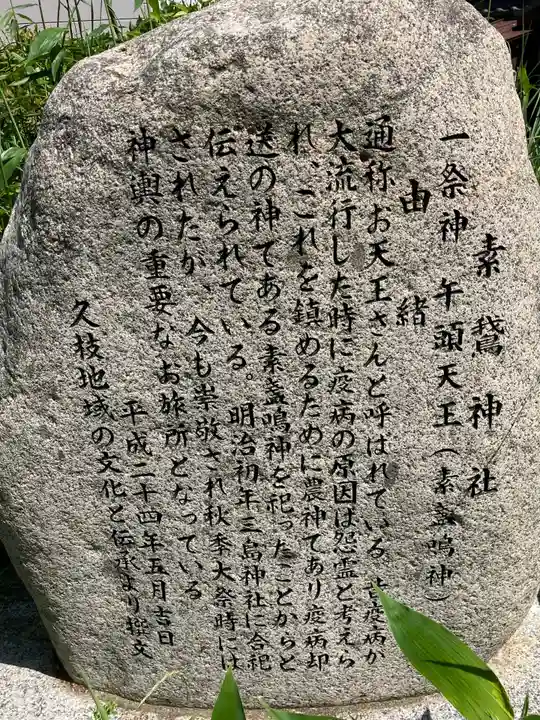 素鵞神社
一祭神 午頭天王(素盞鳴神)
由緒
通称お天王さんと呼ばれている。昔疫病が
大流行した時に疫病の原因は怨霊と考えら
れ、これを鎮めるために農神であり疫病却
送の神である素盞鳴神を祀ったことからと
伝えられている。明治初年三島神社に合祀
されたが、今も崇敬され秋季大祭時には
神輿の重要なお旅所となっている
平成二十四年五月吉日
久枝地域の文化と伝承より撰文